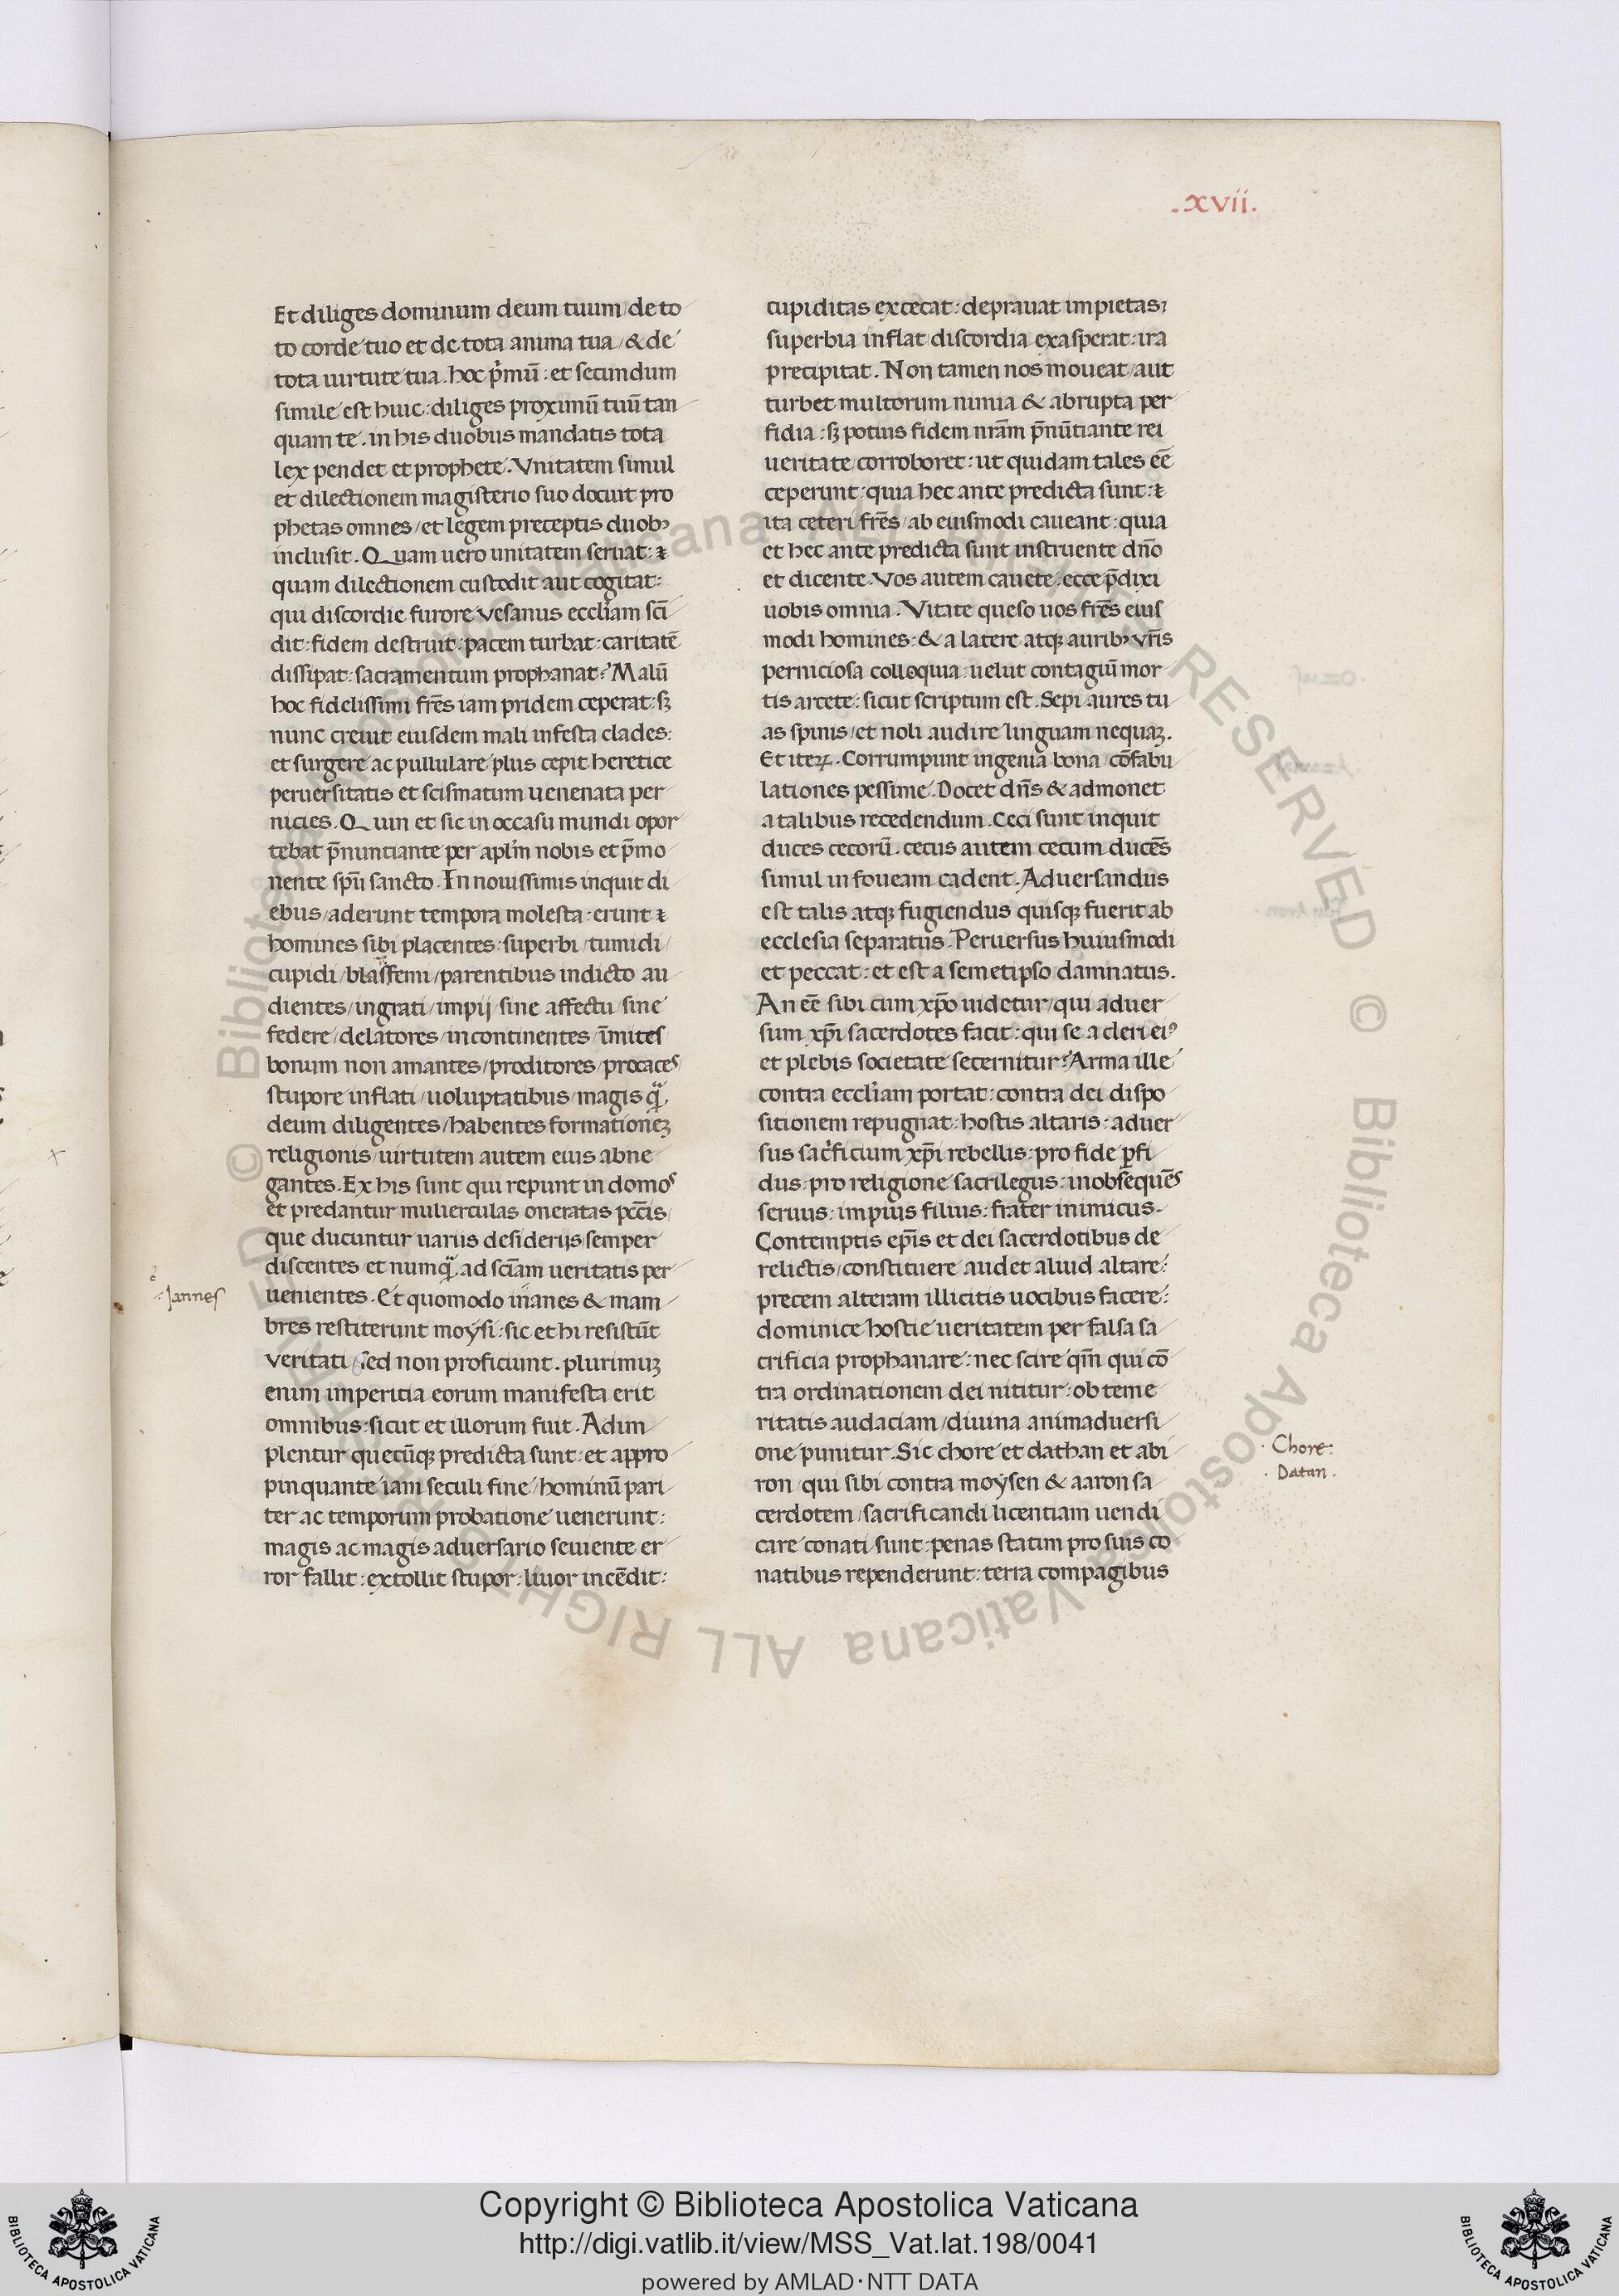 .xvii.
Et diliges dominum deum tuum de to
to corde tuo et de tota anima tua / & de
tota uirtute tua. hoc p̓mū : et secundum
simile est huic : diliges proximū tuū tan
quam te. in his duobus mandatis tota
lex pendet et prophete. Vnitatem simul
et dilectionem magisterio suo docuit pro
phetas omnes / et legem preceptis duobꝫ
inclusit. Quam uero unitatem seruat : ⁊
quam dilectionem custodit aut cogitat :
qui discordie furore vesanus eccl̓iam sci̅
dit : fidem destruit : pacem turbat : caritatē
dissipat : sacramentum prophanat ? Malū
hoc fidelissimi fr̅es iam pridem ceperat : sꝫ
nunc creuit eiusdem mali infesta clades :
et surgere ac pullulare plus cepit heretice
peruersitatis et scismatum uenenata per
nicies. Quin et sic in occasu mundi opor
tebat p̅nuntiante per apl̓m nobis et p̅mo
nente spū sancto. In nouissimis inquit di
ebus / aderunt tempora molesta : erunt ⁊
homines sibi placentes : superbi / tumidi /
cupidi / blasfemi / parentibus indicto au
dientes / ingrati / impij sine affectu / sine
federe / delatores / incontinentes / īmites
bonum non amantes / proditores / procaces
stupore inflati / uoluptatibus / magis qᷓ
deum diligentes / habentes formationeꝫ
religionis / uirtutem autem eius abne
gantes. Ex his sunt qui repunt in domos
et predantur mulierculas oneratas pcc̅is /
que ducuntur uariis desideriis semper
discentes / et numqᷓ ad sci̅am ueritatis per
uenientes. Et quomodo inanes & mam
bres restiterunt moysi : sic et hi resistūt
veritati / sed non proficiunt. plurimuꝫ
enim imperitia eorum manifesta erit
omnibus : sicut et illorum fuit. Adim
plentur quecūqꝫ predicta sunt : et appro
pinquante iam seculi fine / hominū pari
ter ac temporum probatione uenerunt :
magis ac magis aduersario seuiente er
ror fallit : extollit stupor : liuor incēdit :
:Iannes
cupiditas excecat : deprauat impietas :
superbia inflat discordia exasperat : ira
precipitat. Non tamen nos moueat / aut
turbet multorum nimia & abrupta per
fidia : sꝫ potius fidem nr̅am p̅nūtiante rei
ueritate corroboret : ut quidam tales ee̅
ceperunt : quia hec ante predicta sunt : ⁊
ita ceteri fr̅es / ab eiusmodi caueant : quia
et hec ante predicta sunt instruente dn̅o
et dicente. Vos autem cauete. ecce p̅dixi
uobis omnia. Vitate queso uos fr̅es eius
modi homines : & a latere atqꝫ auribꝫ vr̅is
perniciosa colloquia : uelut contagiū mor
tis arcete : sicut scriptum est. Sepi aures tu
as spinis / et noli audire linguam nequaꝫ.
Et iteꝝ. Corrumpunt ingenia bona / cōfabu
lationes pessime. Docet dn̅s & admonet
a talibus recedendum. Ceci sunt inquit
duces cecorū. cecus autem cecum ducēs
simul in foueam cadent. Aduersandus
est talis atqꝫ fugiendus quisqꝫ fuerit ab
ecclesia separatus. Peruersus huiusmodi
et peccat : et est a semetipso damnatus.
An ee̅ sibi cum xp̅o uidetur / qui aduer
sum xp̅i sacerdotes facit : qui se a cleri eiꝰ
et plebis societate secernitur ? Arma ille
contra eccl̓iam portat : contra dei dispo
sitionem repugnat : hostis altaris : aduer
sus sac̓ficium xp̅i rebellis : pro fide ꝑfi
dus : pro religione sacrilegus : inobsequēs
seruus : impius filius : frater inimicus.
Contemptis ep̅is et dei sacerdotibus de
relictis / constituere audet aliud altare :
precem alteram illicitis uocibus facere :
dominice hostie ueritatem per falsa sa
crificia prophanare : nec scire qm̅ qui cō
tra ordinationem dei nititur : ob teme
ritatis audaciam / diuina animaduersi
one punitur. Sic chore et dathan et abi
ron / qui sibi contra moysen & aaron sa
cerdotem / sacrificandi licentiam uendi
care conati sunt : penas statim pro suis co
natibus rependerunt : terra compagibus
· Chore :
· Datan .
© Biblioteca Apostolica Vaticana ALL RIGHTS RESERVED © Biblioteca Apostolica Vaticana ALL RIGHTS RESERVED
Copyright © Biblioteca Apostolica Vaticana
http://digi.vatlib.it/view/MSS_Vat.lat.198/0041
powered by AMLAD·NTT DATA
BIBLIOTECA APOSTOLICA VATICANA
BIBLIOTECA APOSTOLICA VATICANA